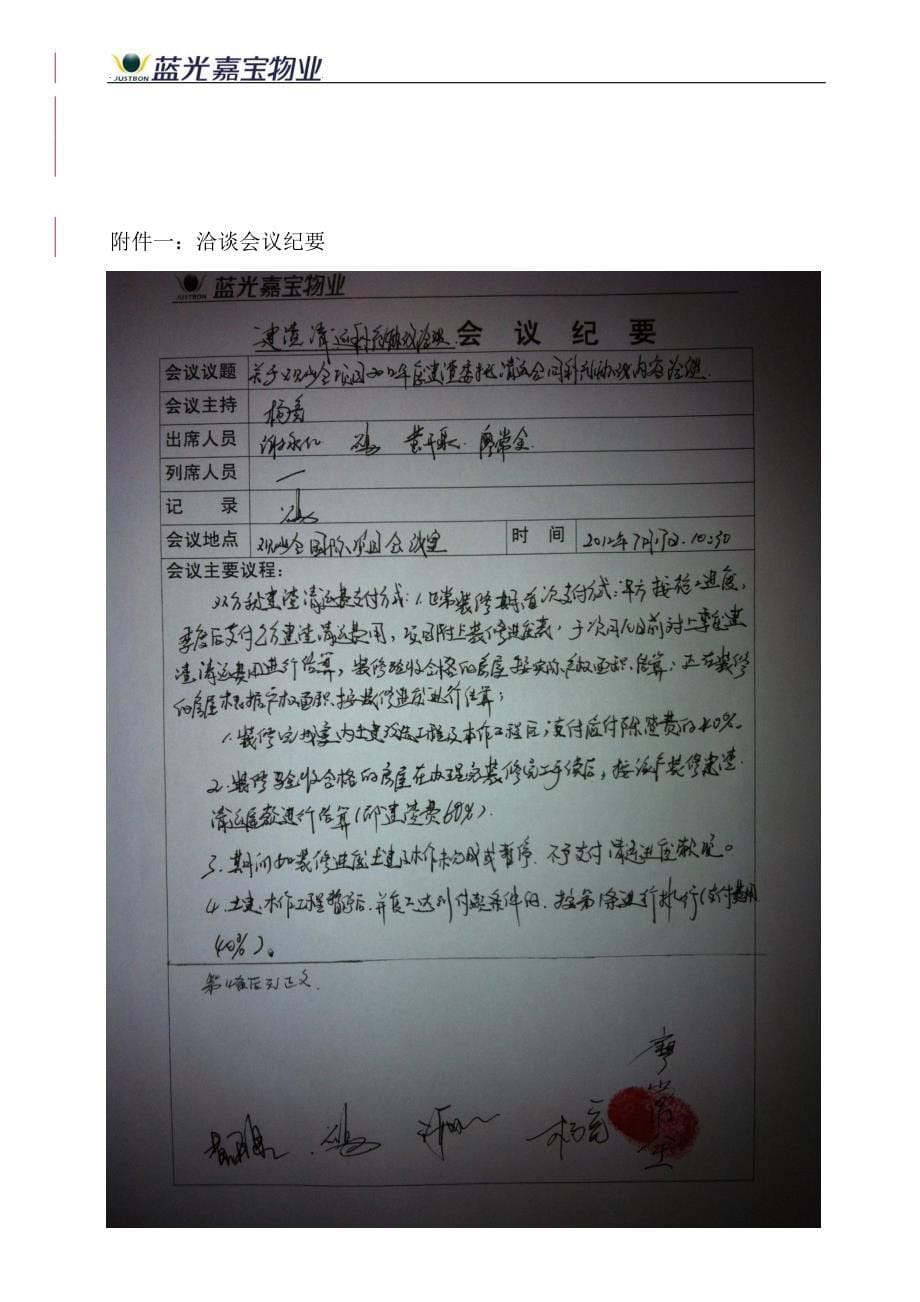 JUSTBON 蓝光嘉宝物业
附件一：洽谈会议纪要
JUSTBON 蓝光嘉宝物业
建渣清运补充协议洽谈 会议纪要
会议议题 关于观岭全项目2012年度建渣委托清运合同补充协议内容洽谈
会议主持
出席人员 廖常全
列席人员 一
记 录
会议地点 国际项目会议室 时 间 2012年7月17日.10:30
会议主要议程：
双方就建渣清运费支付方式：1.日常装修期首次支付方式：甲方按施工进度，
季度后支付乙方建渣清运费用，项目附上装修进度表，于次月10日前对上季度建
渣清运费用进行结算，装修验收合格的房屋按实际产权面积结算；正在装修
的房屋根据产权面积，按装修进度进行结算；
1.装修完成室内土建改造工程及木作工程后，支付应付除渣费的40%。
2.装修验收合格的房屋在办理完装修完工手续后，按该户装修建渣
清运尾款进行结算（即建渣费60%）.
3.期间如装修进度土建及木作未完成或暂停，不予支付清运进度款项。
4.土建、木作工程暂停后，并复工达到付款条件的，按第1条进行执行（支付费用
40%）。
廖常全